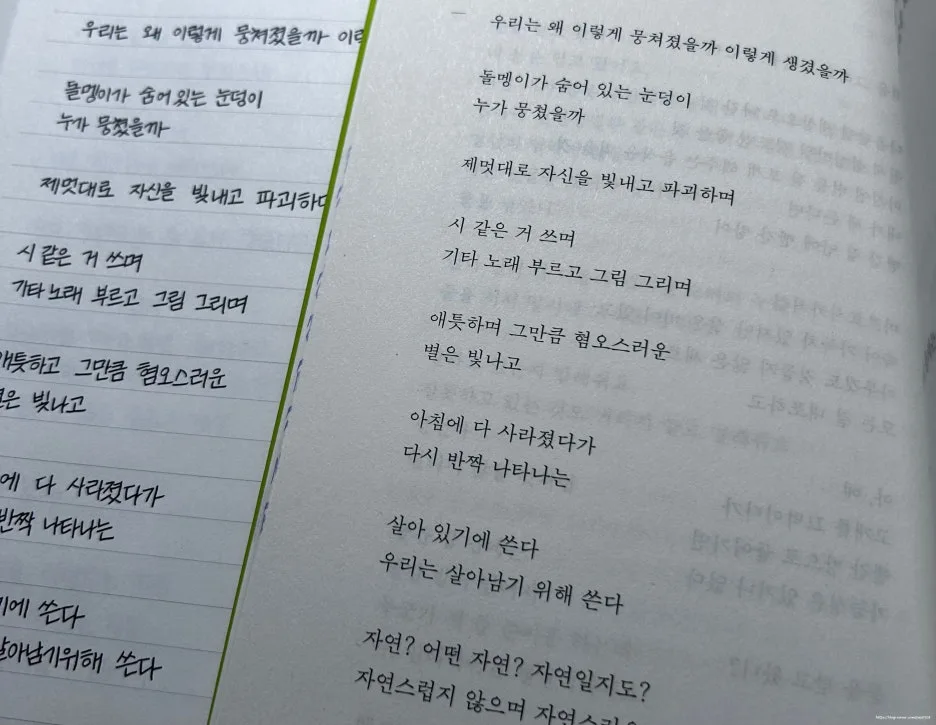 우리는 왜 이렇게 뭉쳐졌을까
돌멩이가 숨어 있는 눈덩이
누가 뭉쳤을까
제멋대로 자신을 빛내고 파괴하
시 같은 거 쓰며
기타 노래 부르고 그림 그리며
애틋하고 그만큼 혐오스러운
빛나고
에 다 사라졌다가
반짝 나타나는
쓴다
살아남기위해 쓴다
우리는 왜 이렇게 뭉쳐졌을까 이렇게 생겼을까
돌멩이가 숨어 있는 눈덩이
누가 뭉쳤을까
제멋대로 자신을 빛내고 파괴하며
시 같은 거 쓰며
기타 노래 부르고 그림 그리며
애틋하며 그만큼 혐오스러운
별은 빛나고
아침에 다 사라졌다가
다시 반짝 나타나는
살아 있기에 쓴다
우리는 살아남기 위해 쓴다
자연? 어떤 자연? 자연일지도?
자연스럽지 않으며